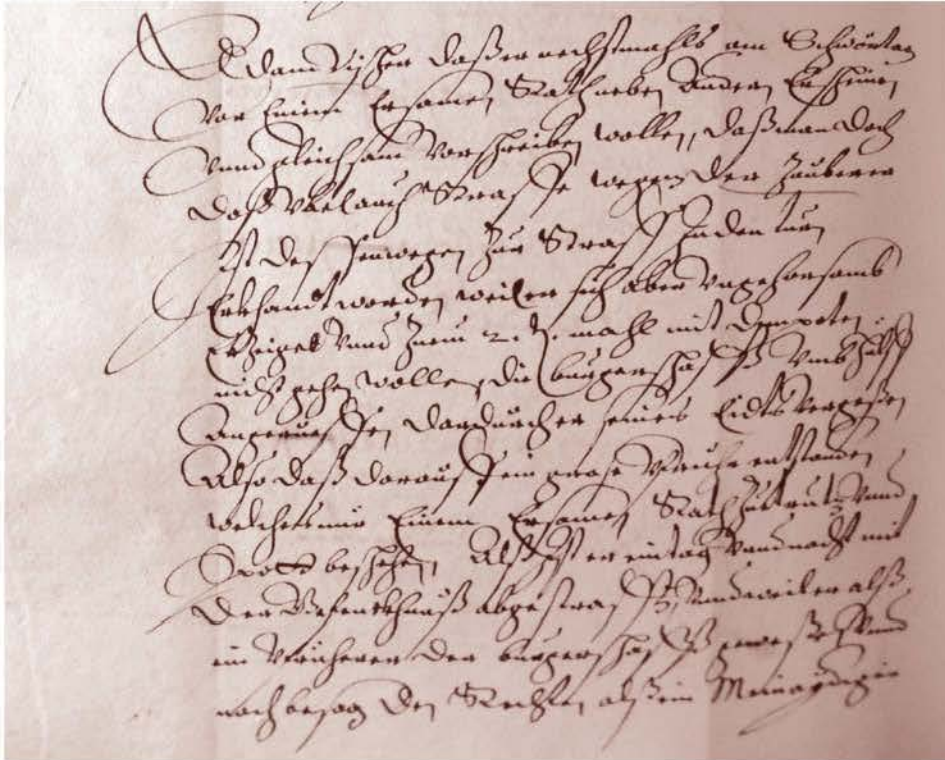 Adam Vischer daß er nechstmahls am Schwörtag
Vor Einem Ersamen Rath neben Andern
Vnnd gleichsam Vorschreiben wollen, daß man doch
daß Straffe wegen der Zauberer
Ist dessentwegen Zur Straff
Erkhandt worden, weil er sich aber Vngehorsamb
erzeiget Vnnd Zum 2. mahl mit
nicht gehen wollen, die burgerschafft Vmb hülff
Angerueffen, dardurch er seines Eidts Vergeßen
Also daß darauß ein große Vnruhe entstanden
welches nur Einem Ersamen Rath Zu trutz Vnnd
Spott beschehen, Alß ist er ein tag Vnnd nacht mit
der gefenckhnuß abgestrafft, Vnnd weil er alß
ein der burgerschafft geweßt Vnnd
nach besag der Rechten alß ein Meinaydiger